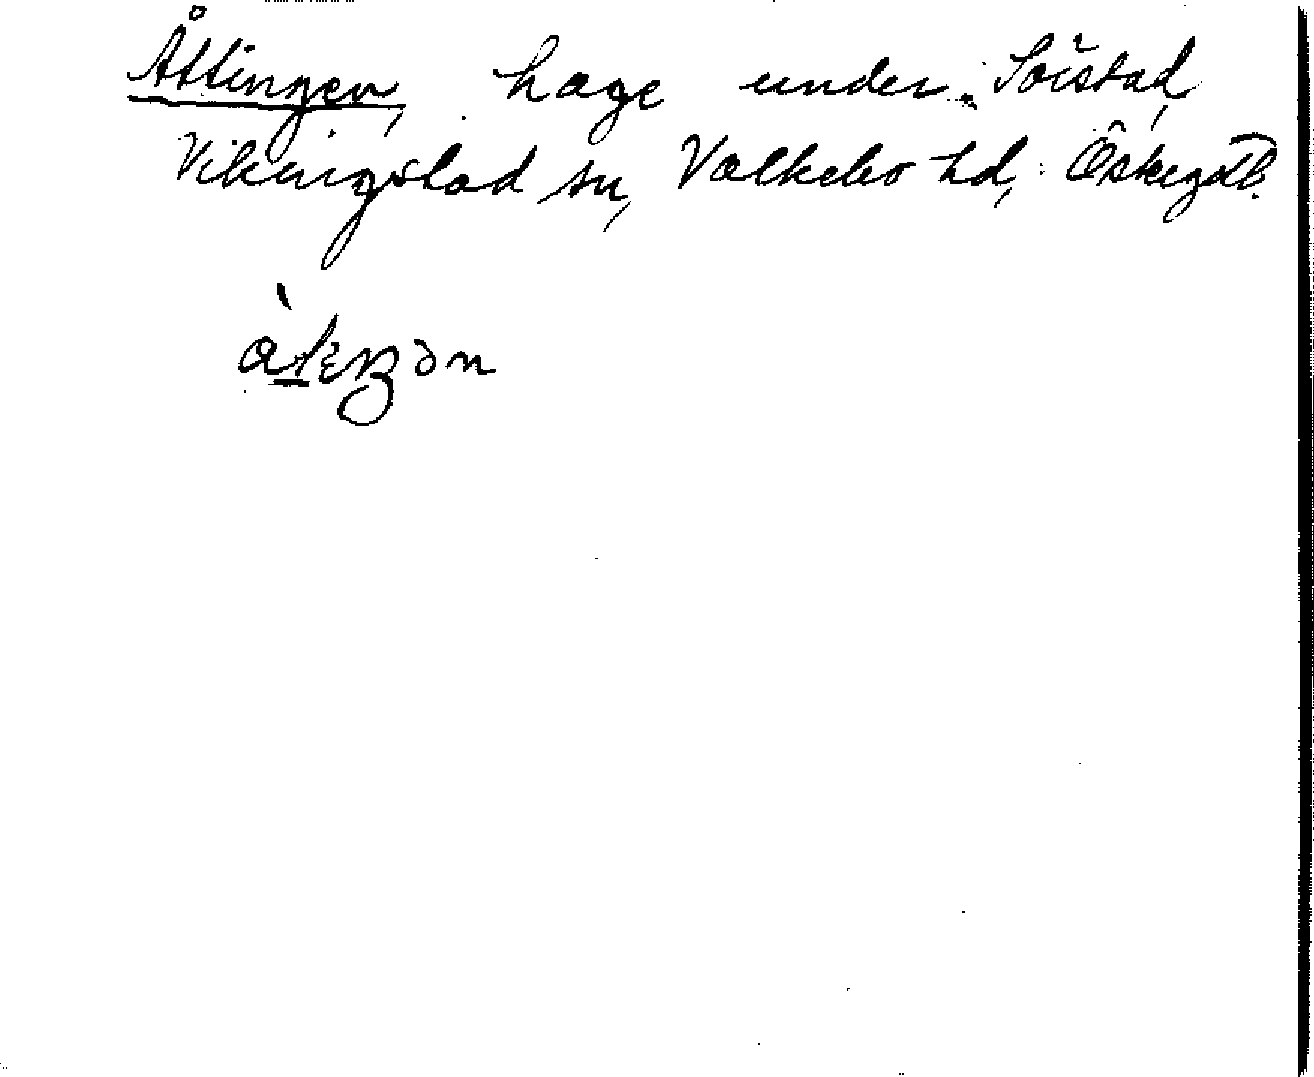 Åttingen, hage under Sörstad,
Vikingstad sn, Valkebo hd, Östergötl.